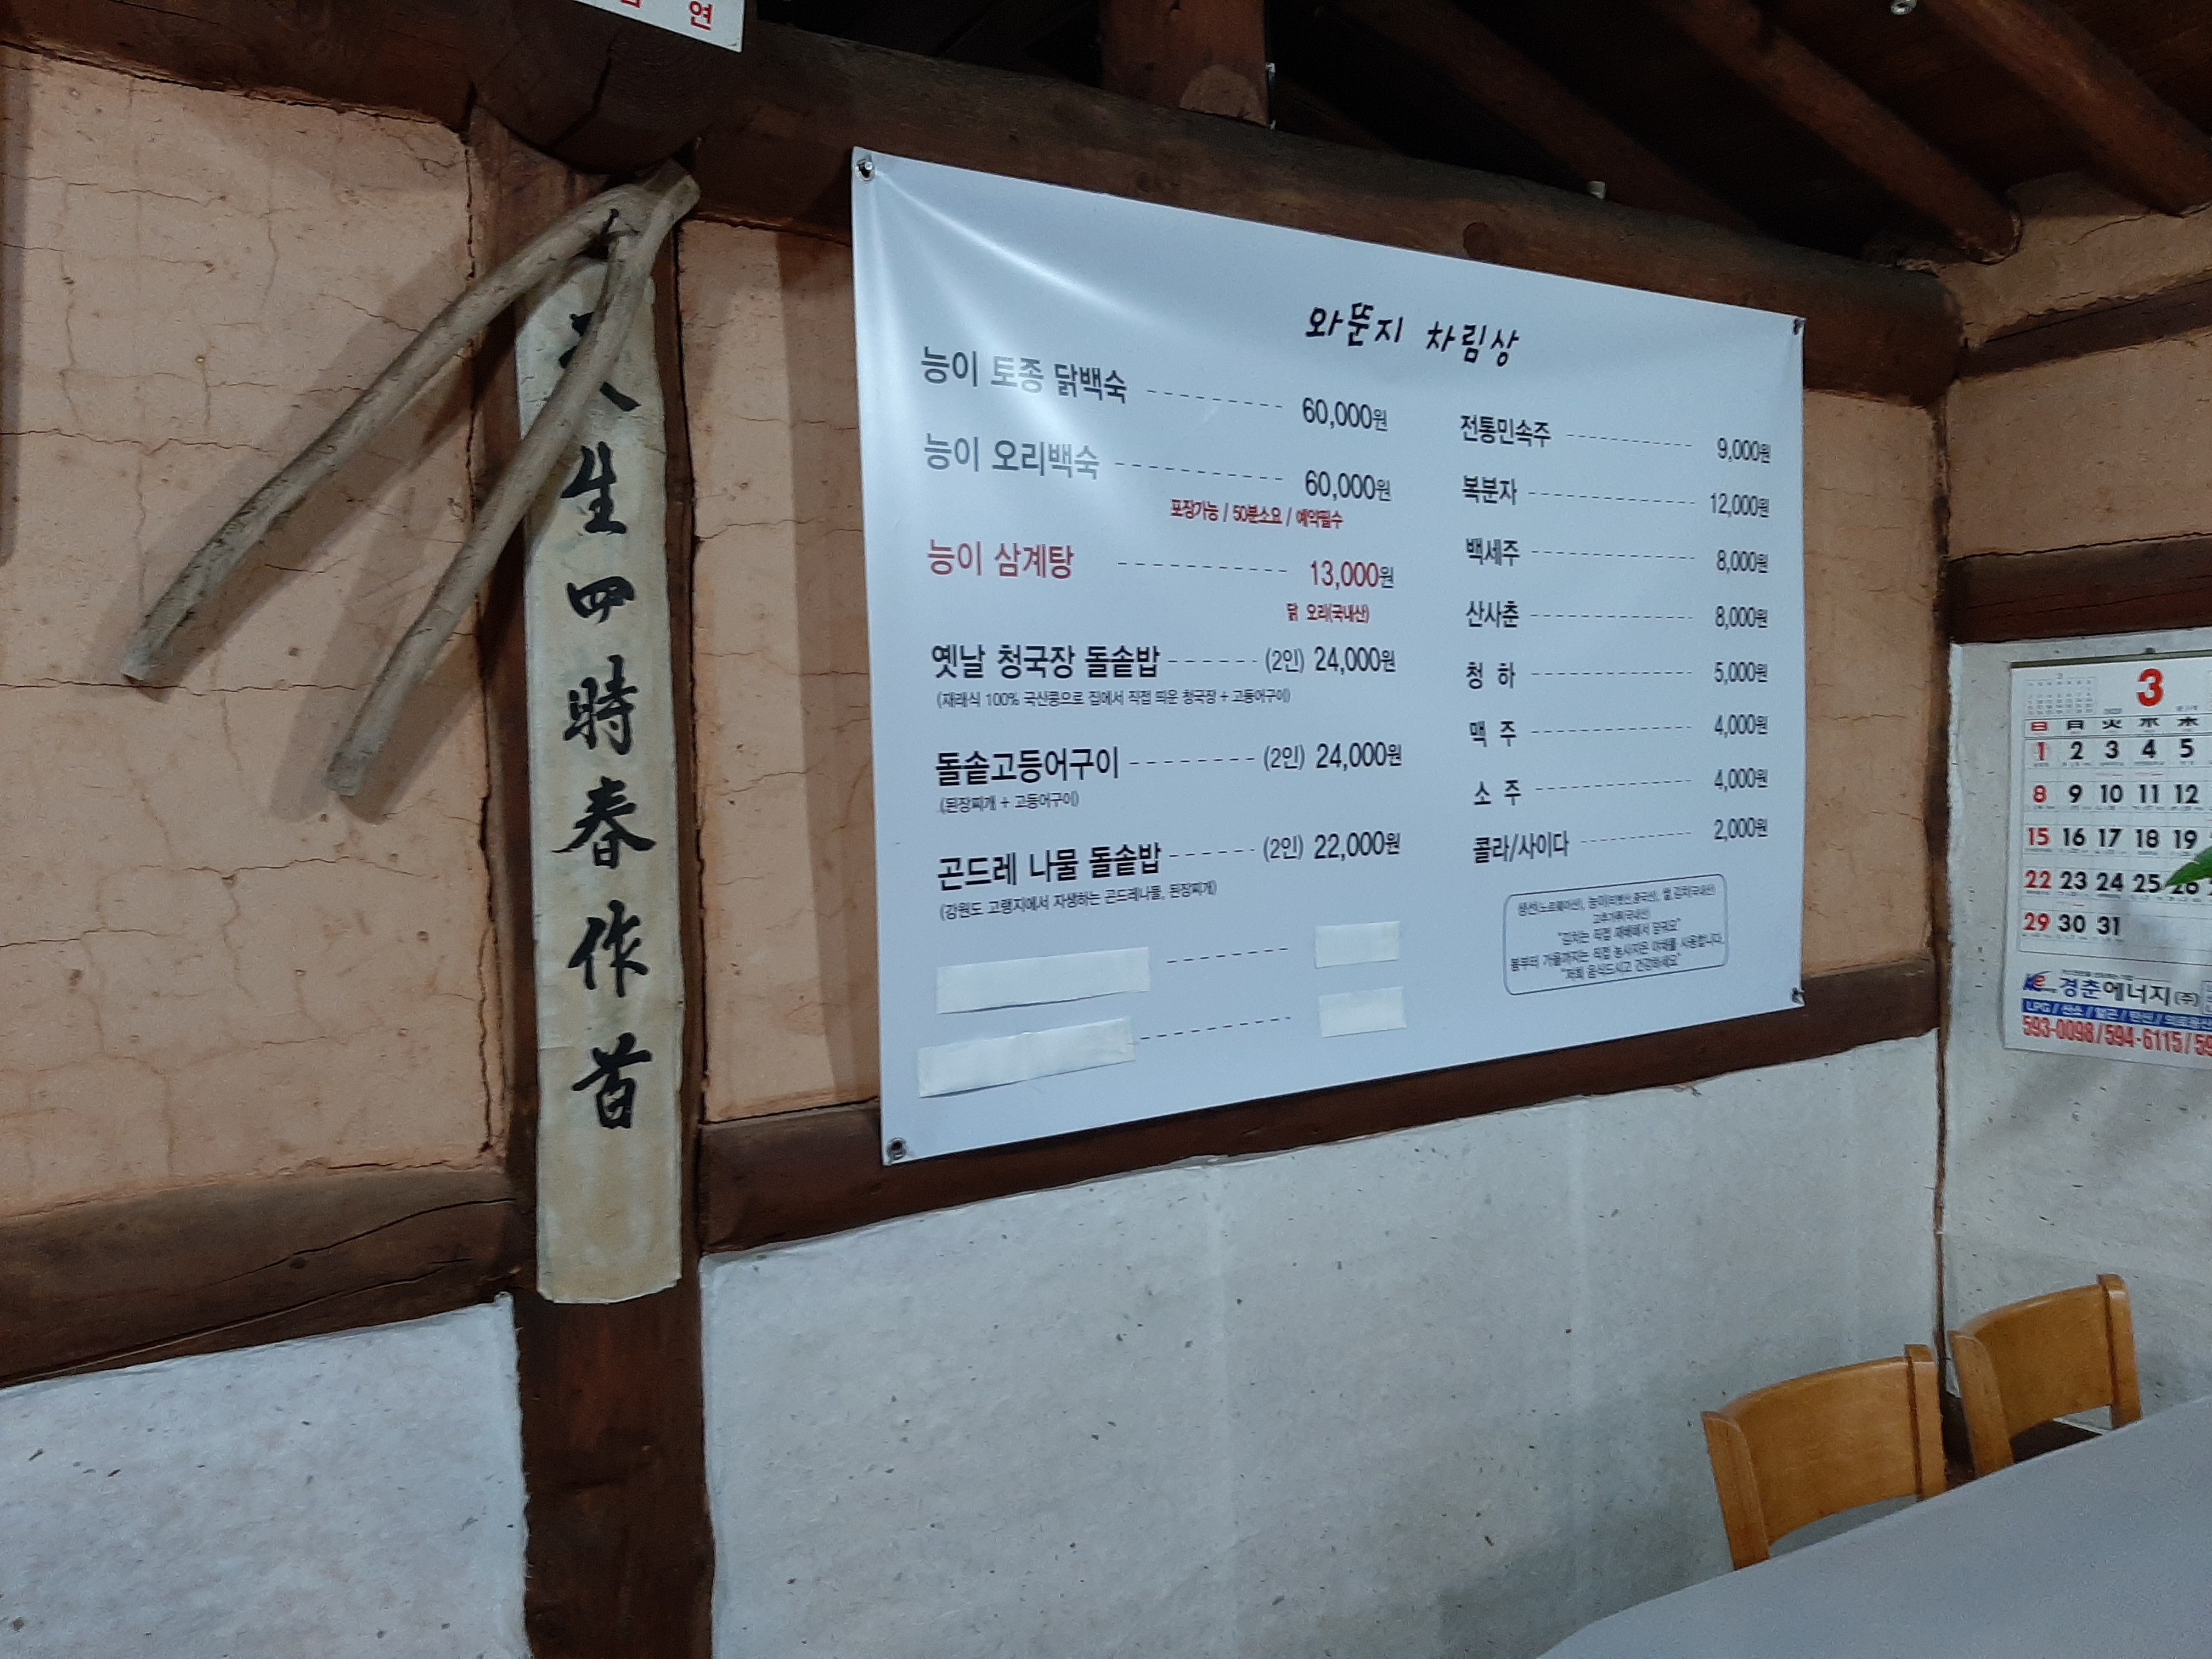 연
天生四時春作首
와뚠지 차림상
능이 토종 닭백숙 60,000원
능이 오리백숙 60,000원
포장가능 / 50분소요 / 예약필수
능이 삼계탕 13,000원
닭 오리(국내산)
옛날 청국장 돌솥밥 (2인) 24,000원
(재래식 100% 국산콩으로 집에서 직접 띄운 청국장 + 고등어구이)
돌솥고등어구이 (2인) 24,000원
(된장찌개 + 고등어구이)
곤드레 나물 돌솥밥 (2인) 22,000원
(강원도 고랭지에서 자생하는 곤드레나물, 된장찌개)
전통민속주 9,000원
복분자 12,000원
백세주 8,000원
산사춘 8,000원
청 하 5,000원
맥 주 4,000원
소 주 4,000원
콜라/사이다 2,000원
고추가루(국내산)
"김치는 직접 재배해서 담궈요"
봄부터 가을까지는 직접 농사지은 야채를 사용합니다.
"저희 음식드시고 건강하세요"
3
日 月 火 水 木
1 2 3 4 5
8 9 10 11 12
15 16 17 18 19
22 23 24 25 26
29 30 31
경춘에너지(주)
593-0098 / 594-6115 / 59